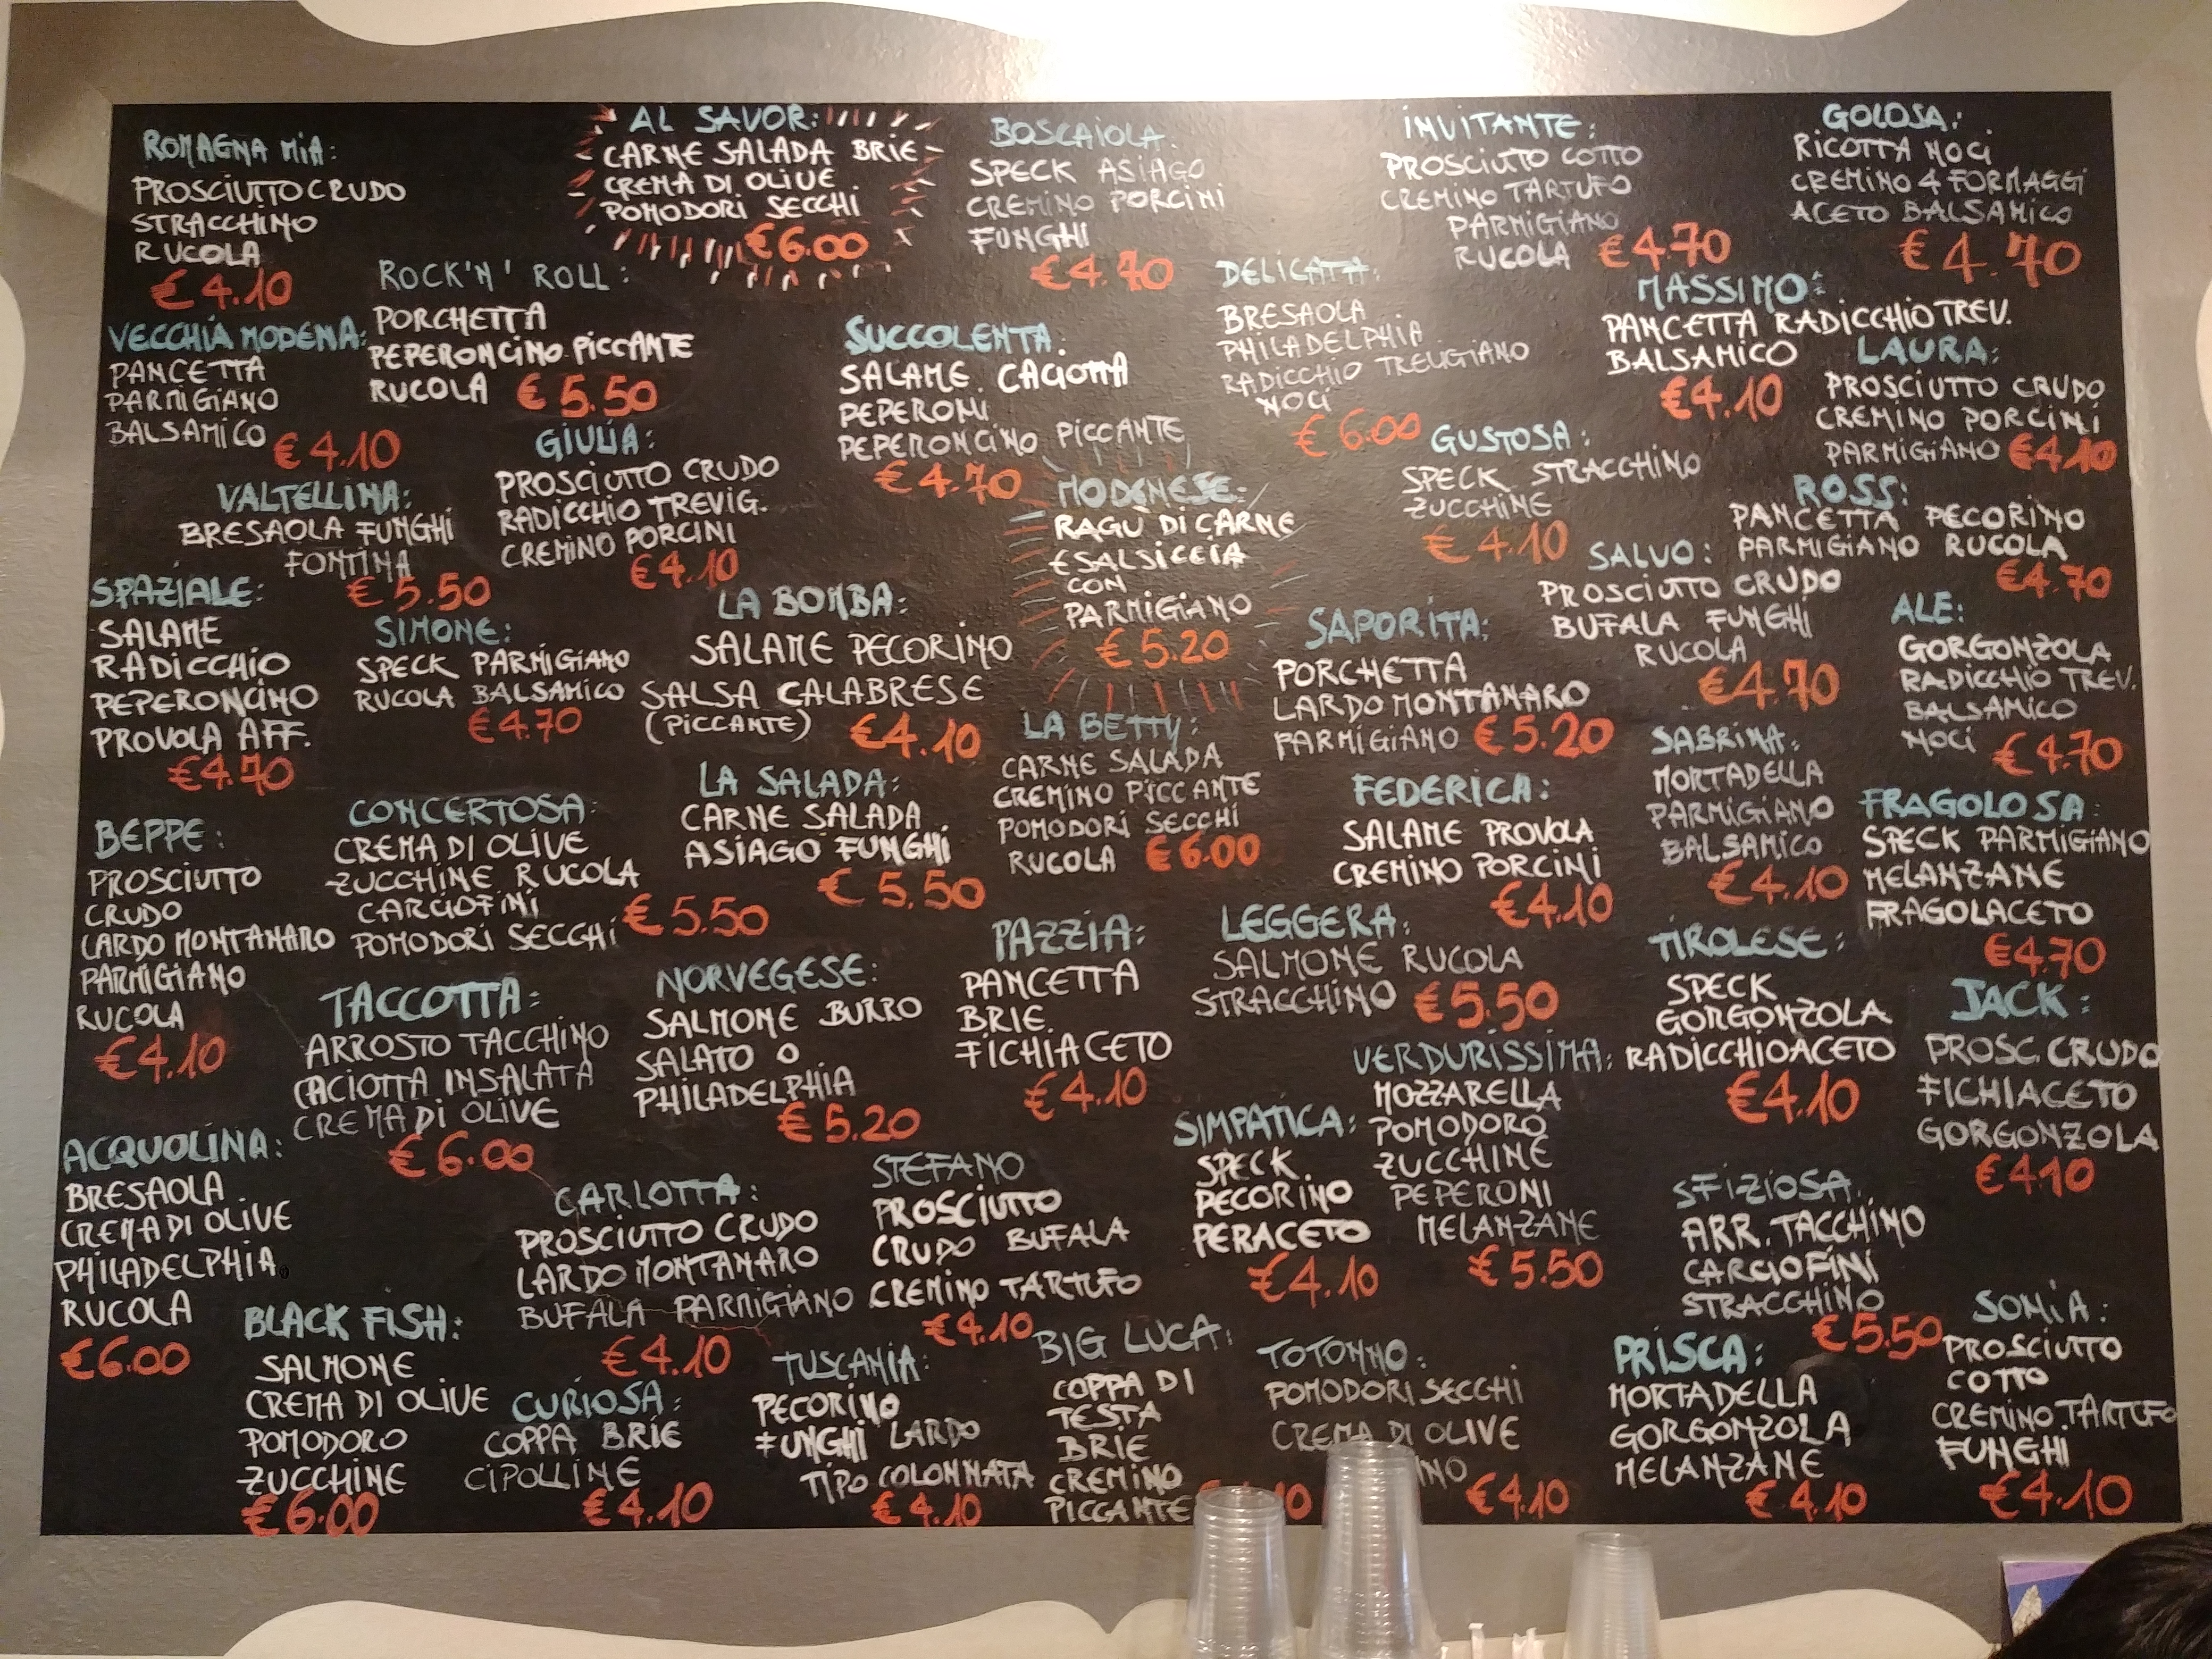 ROMAGNA MIA:
PROSCIUTTO CRUDO
STRACCHINO
RUCOLA
€ 4.10
AL SAVOR:
CARNE SALADA BRIE
CREMA DI OLIVE
POMODORI SECCHI
€ 6.00
BOSCAIOLA:
SPECK ASIAGO
CREMINO PORCINI
FUNGHI
€ 4.70
INVITANTE:
PROSCIUTTO COTTO
CREMINO TARTUFO
PARMIGIANO
RUCOLA € 4.70
GOLOSA:
RICOTTA NOCI
CREMINO 4 FORMAGGI
ACETO BALSAMICO
€ 4.70
ROCK'N' ROLL:
PORCHETTA
PEPERONCINO PICCANTE
RUCOLA € 5.50
DELICATA:
BRESAOLA
PHILADELPHIA
RADICCHIO TREVIGIANO
NOCI
€ 6.00
MASSIMO:
PANCETTA RADICCHIO TREV.
BALSAMICO
€ 4.10
VECCHIA MODENA:
PANCETTA
PARMIGIANO
BALSAMICO € 4.10
SUCCOLENTA:
SALAME CACIOTTA
PEPERONI
PEPERONCINO PICCANTE
€ 4.70
LAURA:
PROSCIUTTO CRUDO
CREMINO PORCINI
PARMIGIANO € 4.10
GIULIA:
PROSCIUTTO CRUDO
RADICCHIO TREVIG.
CREMINO PORCINI
€ 4.10
GUSTOSA:
SPECK STRACCHINO
ZUCCHINE
€ 4.10
VALTELLINA:
BRESAOLA FUNGHI
FONTINA
€ 5.50
MODENESE:
RAGÙ DI CARNE
E SALSICCIA
CON
PARMIGIANO
€ 5.20
ROSS:
PANCETTA PECORINO
PARMIGIANO RUCOLA
€ 4.70
SALVO:
PROSCIUTTO CRUDO
BUFALA FUNGHI
RUCOLA
€ 4.70
SPAZIALE:
SALAME
RADICCHIO
PEPERONCINO
PROVOLA AFF.
€ 4.70
SIMONE:
SPECK PARMIGIANO
RUCOLA BALSAMICO
€ 4.70
LA BOMBA:
SALAME PECORINO
SALSA CALABRESE
(PICCANTE) € 4.10
SAPORITA:
PORCHETTA
LARDO MONTANARO
PARMIGIANO € 5.20
ALE:
GORGONZOLA
RADICCHIO TREV.
BALSAMICO
NOCI € 4.70
LA BETTY:
CARNE SALADA
CREMINO PICCANTE
POMODORI SECCHI
RUCOLA € 6.00
SABRINA:
MORTADELLA
PARMIGIANO
BALSAMICO
€ 4.10
LA SALADA:
CARNE SALADA
ASIAGO FUNGHI
€ 5.50
FEDERICA:
SALAME PROVOLA
CREMINO PORCINI
€ 4.10
FRAGOLOSA:
SPECK PARMIGIANO
MELANZANE
FRAGOLACETO
€ 4.70
BEPPE:
PROSCIUTTO
CRUDO
LARDO MONTANARO
PARMIGIANO
RUCOLA
€ 4.10
CONCERTOSA:
CREMA DI OLIVE
ZUCCHINE RUCOLA
CARCIOFINI
POMODORI SECCHI € 5.50
PAZZIA:
PANCETTA
BRIE
FICHIACETO
€ 4.10
LEGGERA:
SALMONE RUCOLA
STRACCHINO € 5.50
TIROLESE:
SPECK
GORGONZOLA
RADICCHIOACETO
€ 4.10
TACCOTTA:
ARROSTO TACCHINO
CACIOTTA INSALATA
CREMA DI OLIVE
€ 6.00
NORVEGESE:
SALMONE BURRO
SALATO O
PHILADELPHIA
€ 5.20
JACK:
PROSC. CRUDO
FICHIACETO
GORGONZOLA
€ 4.10
VERDURISSIMA:
MOZZARELLA
POMODORO
ZUCCHINE
PEPERONI
MELANZANE
€ 5.50
SIMPATICA:
SPECK
PECORINO
PERACETO
€ 4.10
ACQUOLINA:
BRESAOLA
CREMA DI OLIVE
PHILADELPHIA
RUCOLA
€ 6.00
CARLOTTA:
PROSCIUTTO CRUDO
LARDO MONTANARO
BUFALA PARMIGIANO
€ 4.10
STEFANO
PROSCIUTTO
CRUDO BUFALA
CREMINO TARTUFO
€ 4.10
SFIZIOSA
ARR. TACCHINO
CARCIOFINI
STRACCHINO
€ 5.50
BLACK FISH:
SALMONE
CREMA DI OLIVE
POMODORO
ZUCCHINE
€ 6.00
CURIOSA:
COPPA BRIE
CIPOLLINE
€ 4.10
TUSCANIA:
PECORINO
FUNGHI LARDO
TIPO COLONNATA
€ 4.10
BIG LUCA:
COPPA DI
TESTA
BRIE
CREMINO
PICCANTE
TOTONNO:
POMODORI SECCHI
CREMA DI OLIVE
€ 4.10
PRISCA:
MORTADELLA
GORGONZOLA
MELANZANE
€ 4.10
SONIA:
PROSCIUTTO
COTTO
CREMINO TARTUFO
FUNGHI
€ 4.10